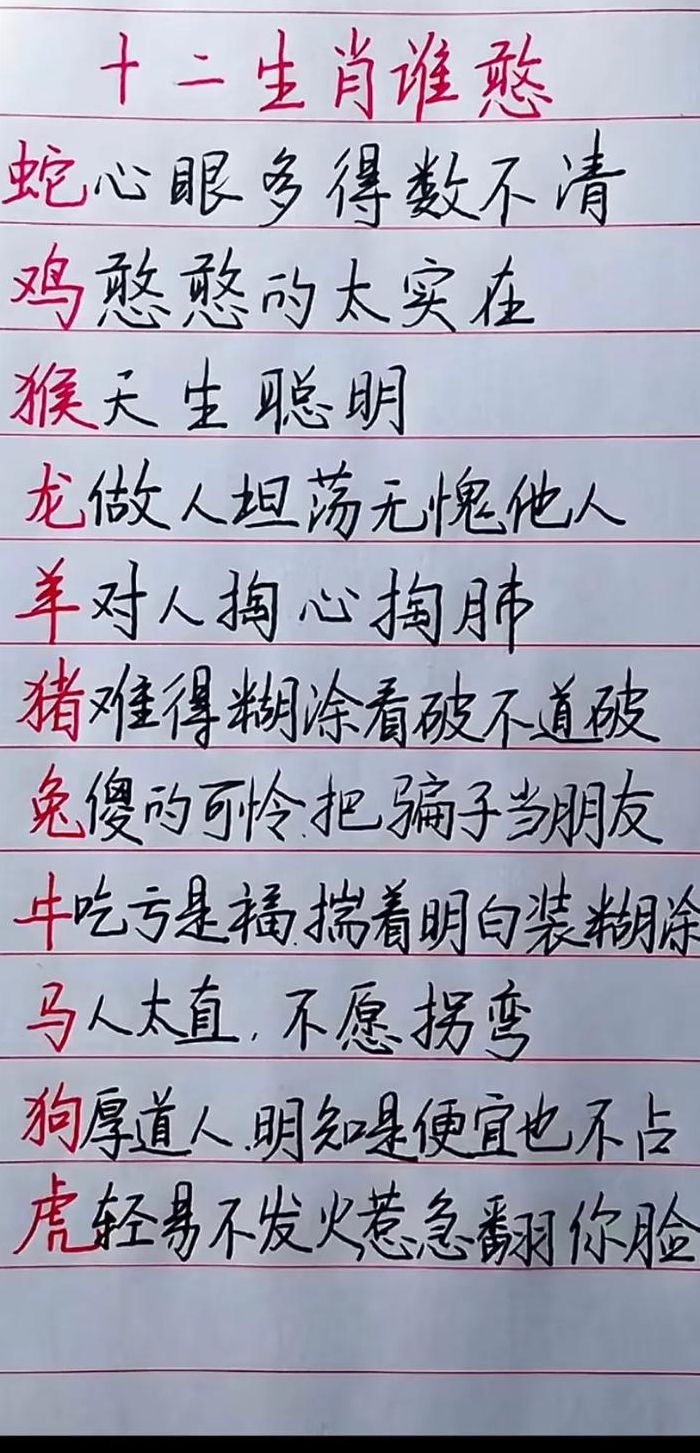 十二生肖谁憨
蛇心眼多得数不清
鸡憨憨的太实在
猴天生聪明
龙做人坦荡无愧他人
羊对人掏心掏肺
猪难得糊涂看破不道破
兔傻的可怜.把骗子当朋友
牛吃亏是福.揣着明白装糊涂
马人太直,不愿拐弯
狗厚道人.明知是便宜也不占
虎轻易不发火惹急翻你脸